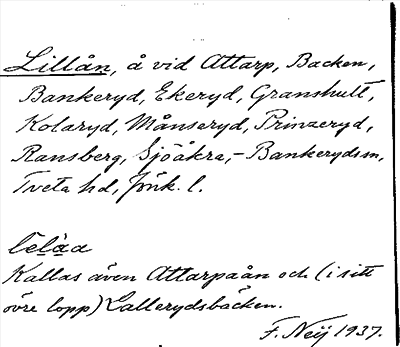 Lillån, å vid Attarp, Backen,
Bankeryd, Ekeryd, Granshult,
Kolaryd, Månseryd, Prinzeryd,
Ransberg, Sjöåkra, – Bankeryds sn,
Tveta hd, Jönk. l.
Kallas även Attarpaån och (i sitt
övre lopp) Lallerydsbäcken.
F. Neij 1937.